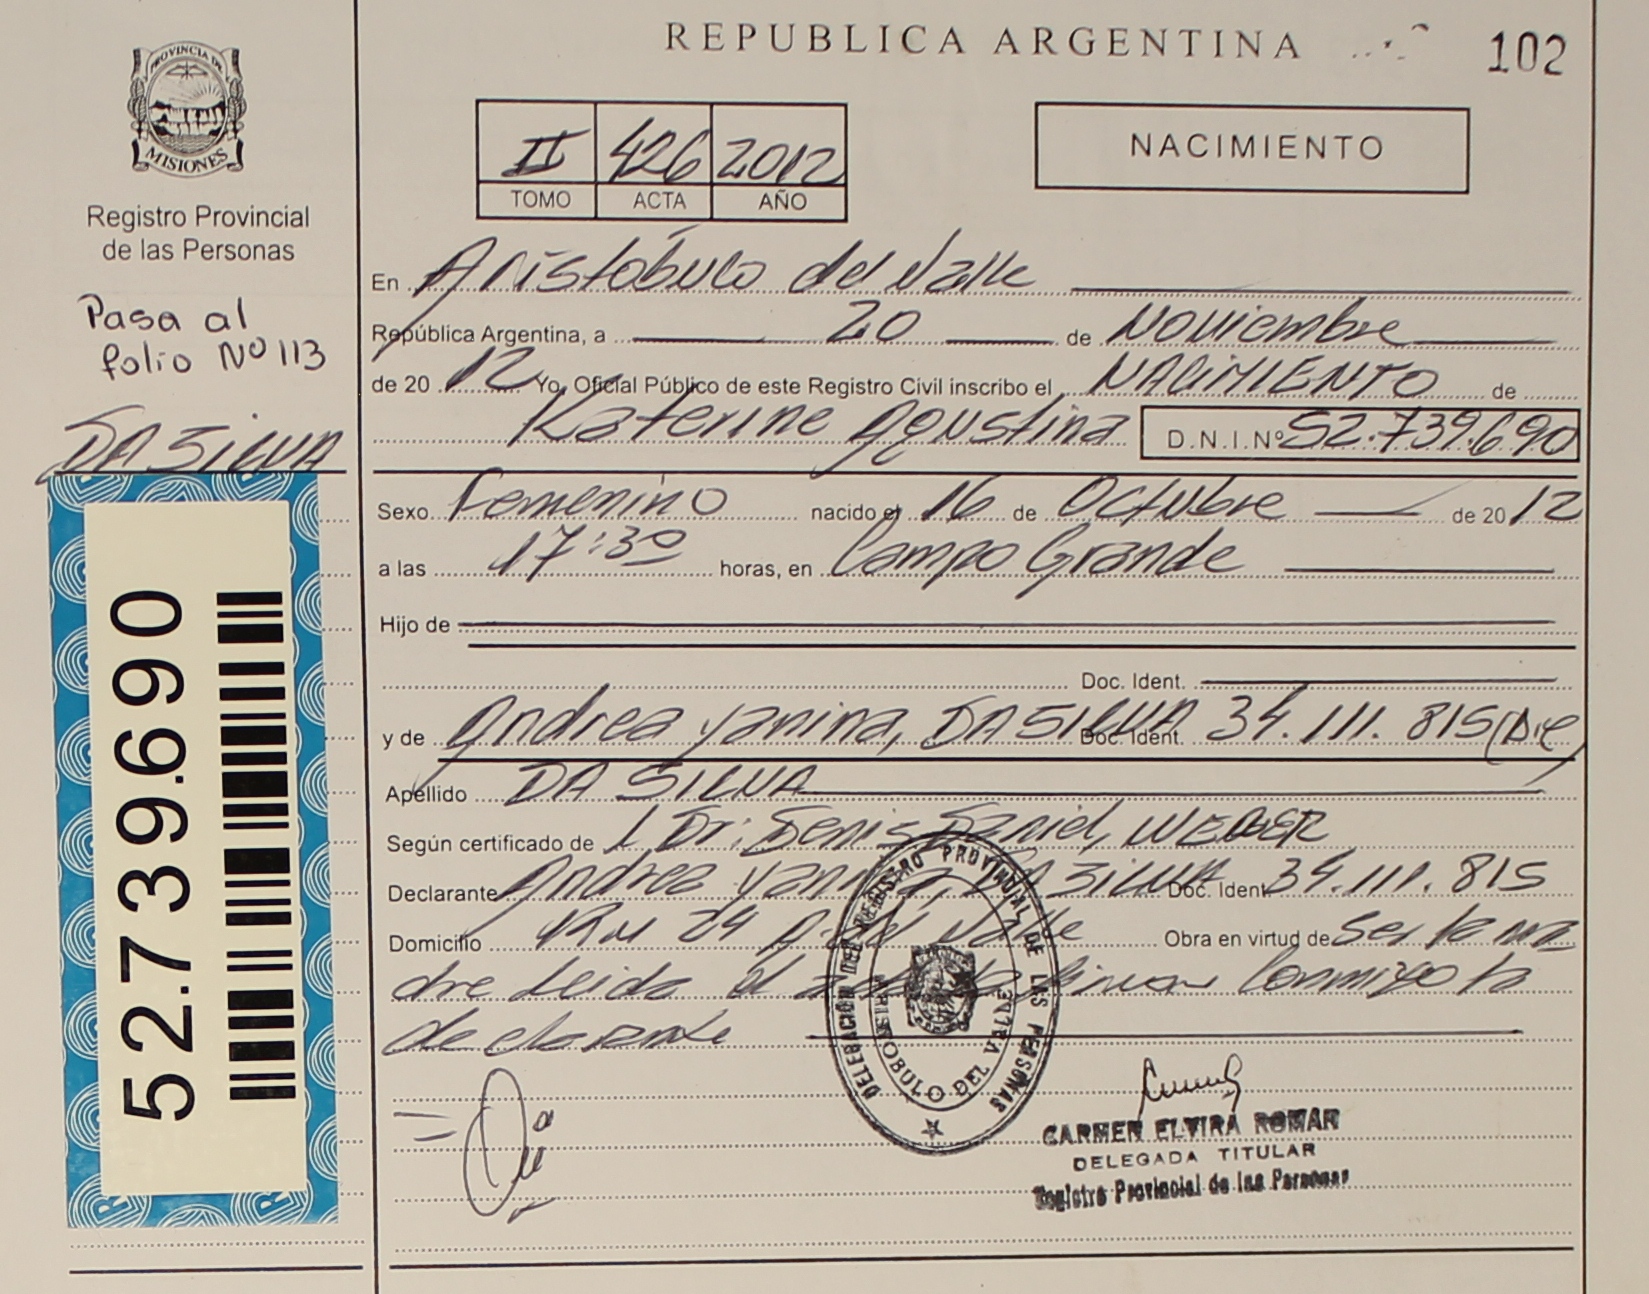 REPUBLICA ARGENTINA
102
PROVINCIA DE
MISIONES
Registro Provincial
de las Personas
Pasa al
folio Nº 113
DA SILVA
52.739.690
II 426 2012
TOMO ACTA AÑO
NACIMIENTO
En Aristóbulo del Valle
República Argentina, a 20 de Noviembre
de 20 12 Yo, Oficial Público de este Registro Civil inscribo el NACIMIENTO de
Katerine Agustina D.N.I.Nº 52.739.690
Sexo Femenino nacido el 16 de Octubre de 20 12
a las 17:30 horas, en Campo Grande
Hijo de
Doc. Ident.
y de Andrea Yanina, DA SILVA Doc. Ident. 34.111.815
Apellido DA SILVA
Según certificado de Dr: Denis Daniel, WEBER
Declarante Andrea Yanina, DA SILVA Doc. Ident. 34.111.815
Domicilio Valle Obra en virtud de ser la ma
dre Leida el acta la firman conmigo la
declarante
DELEGACION DEL REGISTRO PROVINCIAL DE LAS PERSONAS
ARISTOBULO DEL VALLE
CARMEN ELVIRA ROMAN
DELEGADA TITULAR
Registro Provincial de las Personas